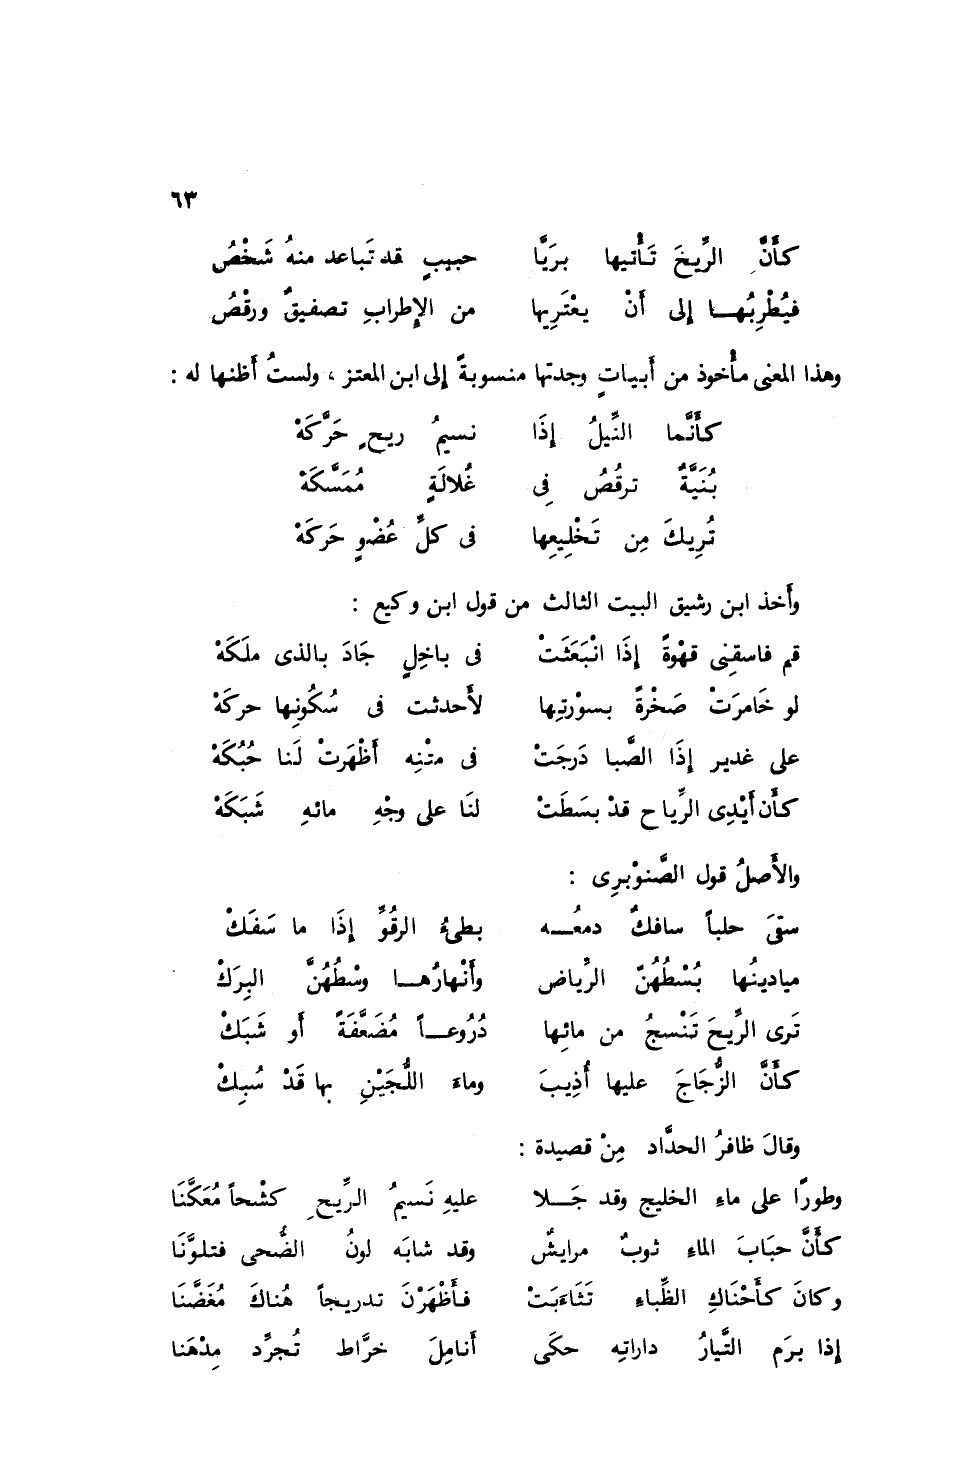 ٦٣
كأنَّ الرِّيحَ تَأْتيها بريَّا حبيبٍ قد تَباعد منهُ شَخْصُ
فيُطْرِبُهـــا إلى أَنْ يعْتَرِيها من الإِطرابِ تصفيقٌ ورقْصُ
وهذا المعنى مأْخوذ من أَبياتٍ وجدتها منسوبةً إلى ابن المعتز ، ولستُ أَظنها له :
كأَنَّما النِّيلُ إِذَا نسيمُ ريحٍ حَرَّكَهْ
بُنَيَّةٌ ترقُصُ فِى غُلالَةٍ مُمَسَّكَهْ
تُرِيكَ مِن تَخْلِيعِها فى كلِّ عُضْوٍ حَركَهْ
وأَخذ ابن رشيق البيت الثالث من قول ابن وكيع :
قم فاسقِنِى قهْوةً إِذَا انْبَعَثَتْ فى باخِلٍ جَادَ بالذى ملَكَهْ
لو خَامرَتْ صَخْرةً بسوْرتِها لأَحدثت فى سُكُونِها حركَهْ
على غدير إِذَا الصَّبا دَرجَتْ فى متْنِه أَظْهَرتْ لَنا حُبُكَهْ
كأَن أَيْدِى الرِّياح قدْ بسَطَتْ لنَا على وجْهِ مائهِ شَبَكَهْ
والأَصلُ قول الصَّنوْبرِى :
سقىَ حلباً سافكٌ دمعُـــه بطىءُ الرقُوِّ إِذَا ما سَفَكْ
ميادينُها بُسْطُهُنّ الرِّياض وأَنْهارُهـــا وسْطُهُنَّ البِرَكْ
تَرى الرِّيحَ تَنْسجُ من مائِها دُرُوعـــاً مُضَعَّفَةً أَو شَبَكْ
كأَنَّ الزُّجَاجَ عليها أُذِيبَ وماءَ اللُّجَيْنِ بها قَدْ سُبِكْ
وقالَ ظافرُ الحدَّاد مِنْ قصيدة :
وطورًا على ماءِ الخليج وقد جَـــلا عليهِ نَسيمُ الرِّيحِ كشْحاً مُعَكَّنَا
كأَنَّ حبَابَ الماءِ ثوبٌ مرايشٌ وقد شابَه لونُ الضُّحى فتلوَّنَا
وكانَ كأَحْنَاكِ الظِّباءِ تَثَاءَبَتْ فأَظْهَرْنَ تدريجاً هُناكَ مُغَضَّنَا
إذا برَم التَّيارُ داراتِه حكَى أَنامِلَ خرَّاط تُجرِّد مِدْهَنا